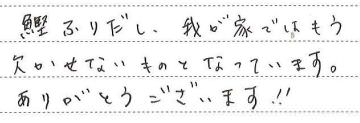 鰹ふりだし、我が家ではもう
欠かせないものとなっています。
ありがとうございます!!